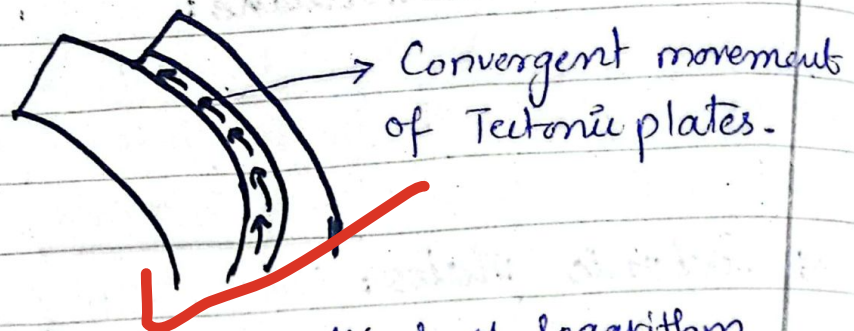 Convergent movement
of Tectonic plates.
logarithm